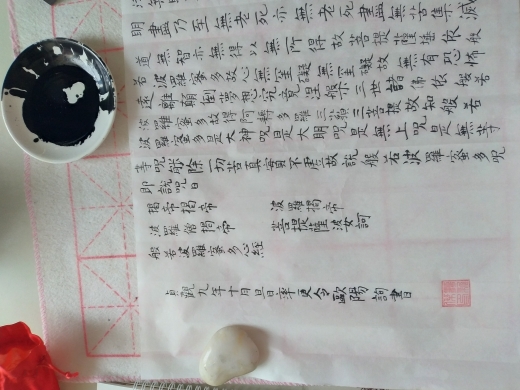 明盡乃至無老死亦無老死盡無苦集滅
道無智亦無得以無所得故菩提薩埵依般
若波羅蜜多故心無罣礙無罣礙故無有恐怖
遠離顛倒夢想究竟涅槃三世諸佛依般若
波羅蜜多故得阿耨多羅三藐三菩提故知般若
波羅蜜多是大神呪是大明呪是無上呪是無等
等呪能除一切苦真實不虛故說般若波羅蜜多呪
即說呪曰
揭帝揭帝 波羅揭帝
波羅僧揭帝 菩提薩婆訶
般若波羅蜜多心經
貞觀九年十月旦日率更令歐陽詢書